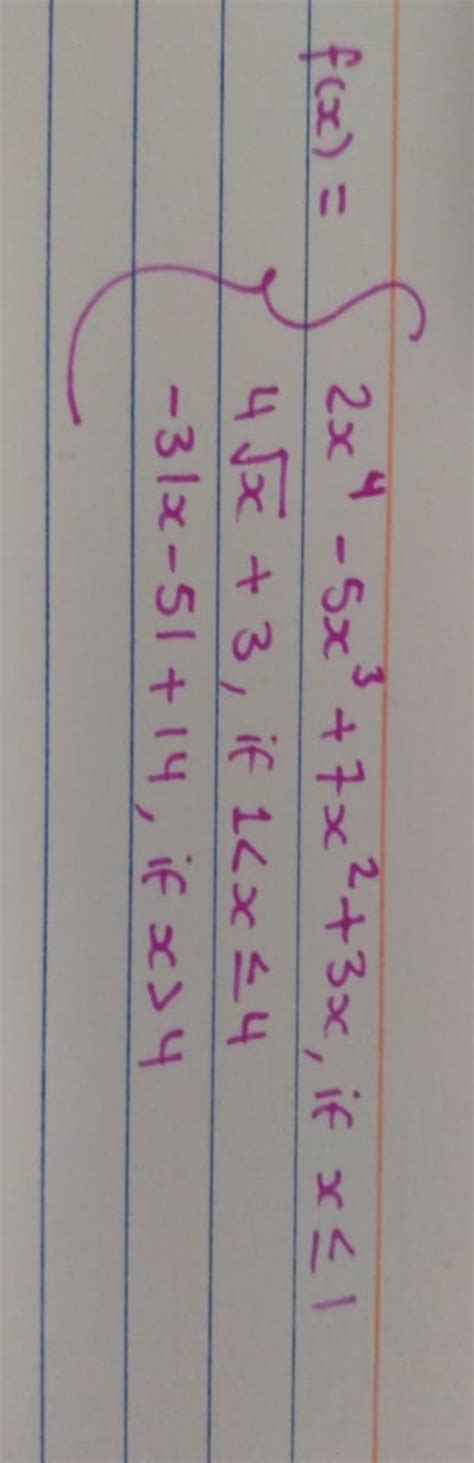 f(x) = { 2x⁴ - 5x³ + 7x² + 3x, if x ≤ 1
4√x + 3, if 1 < x ≤ 4
-3|x-5| + 14, if x > 4